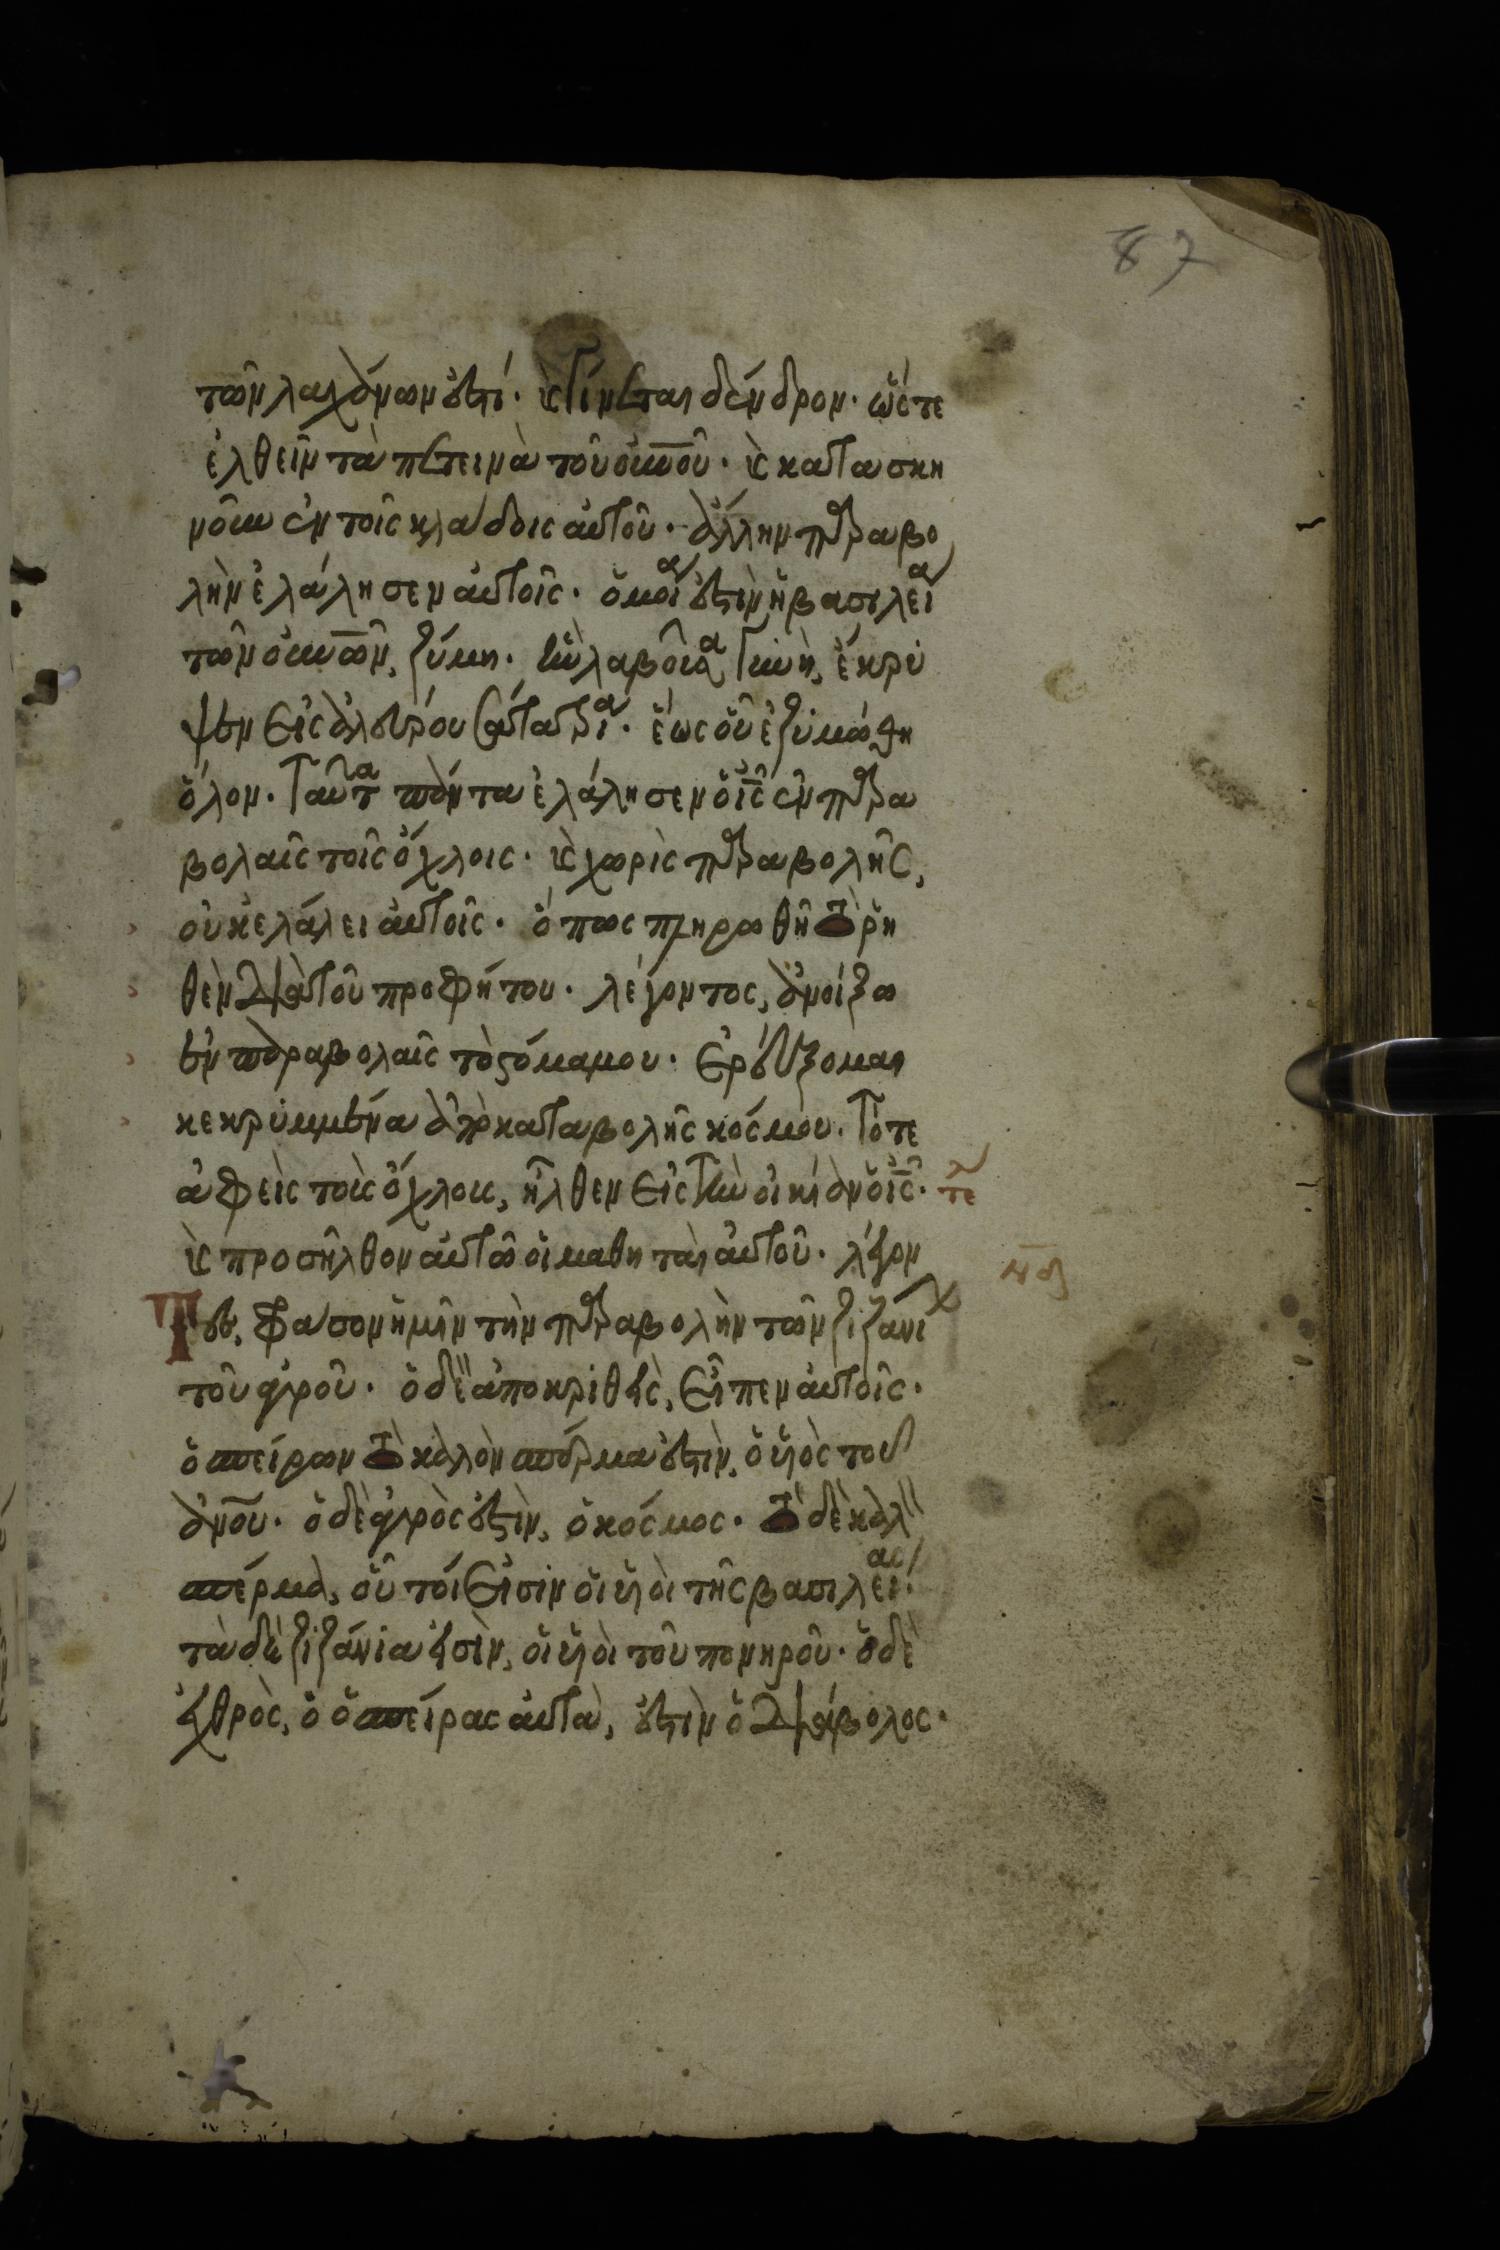 87
τῶν λαχάνων ἐστί· καὶ γίνεται δένδρον· ὥστε
ἐλθεῖν τὰ πετεινὰ τοῦ οὐνοῦ· καὶ κατασκη
νοῦν ἐν τοῖς κλάδοις αὐτοῦ· ἄλλην παραβο
λὴν ἐλάλησεν αὐτοῖς· ὁμοία ἐστὶν ἡ βασιλεία
τῶν οὐνῶν, ζύμη· ἣν λαβοῦσα γυνὴ, ἔκρυ
ψεν εἰς ἀλεύρου σάτα τρία· ἕως οὗ ἐζυμώθη
ὅλον· Ταῦτα πάντα ἐλάλησεν ὁ ἰς ἐν παρα
βολαῖς τοῖς ὄχλοις· καὶ χωρὶς παραβολῆς,
οὐκ ἐλάλει αὐτοῖς· ὅπως πληρωθῆ τὸ ῥη
θὲν διὰ τοῦ προφήτου· λέγοντος, ἀνοίξω
ἐν παραβολαῖς τὸ στόμα μου· ἐρεύξομαι
κεκρυμμένα ἀπὸ καταβολῆς κόσμου. Τότε
ἀφεὶς τοὺς ὄχλους, ἦλθεν εἰς τὴν οἰκίαν ὁ ἰς· τε
καὶ προσῆλθον αὐτῶ οἱ μαθηταὶ αὐτοῦ· λέγον
Τες, φράσον ἡμῖν τὴν παραβολὴν τῶν ζιζανί
τοῦ ἀγροῦ· ὁ δὲ ἀποκριθεὶς, εἶπεν αὐτοῖς·
ὁ σπείρων τὸ καλὸν σπέρμα ἐστὶν, ὁ υἱὸς τοῦ
ἀνου· ὁ δὲ ἀγρὸς ἐστὶν, ὁ κόσμος· τὸ δὲ καλὸν
σπέρμα, οὗτοί εἰσιν οἱ υἱοὶ τῆς βασιλείας·
τὰ δὲ ζιζάνια εἰσὶν, οἱ υἱοὶ τοῦ πονηροῦ· ὁ δὲ
ἐχθρὸς, ὁ σπείρας αὐτὰ, ἐστὶν ὁ διάβολος·